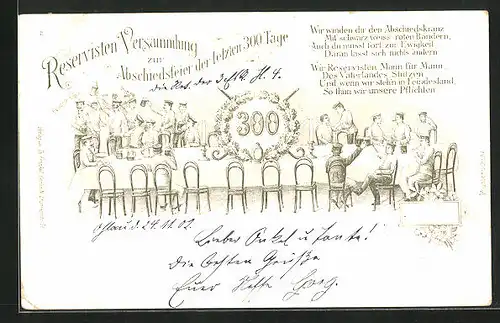 Reservisten Versammlung
zur
Abschiedsfeier der letzten 300 Tage
Wir winden dir den Abschiedskranz
Mit schwarz weiss roten Bändern,
Auch du musst fort zur Ewigkeit
Daran lässt sich nichts ändern
Wir Reservisten Mann für Mann
Des Vaterlandes Stützen
Und wenn wir stehn in Feindesland,
So thun wir unsere Pflichten
300
Ohlau d. 24.11.02.
Lieber Onkel u. Tante!
Die besten Grüße
Euer Neffe Georg.